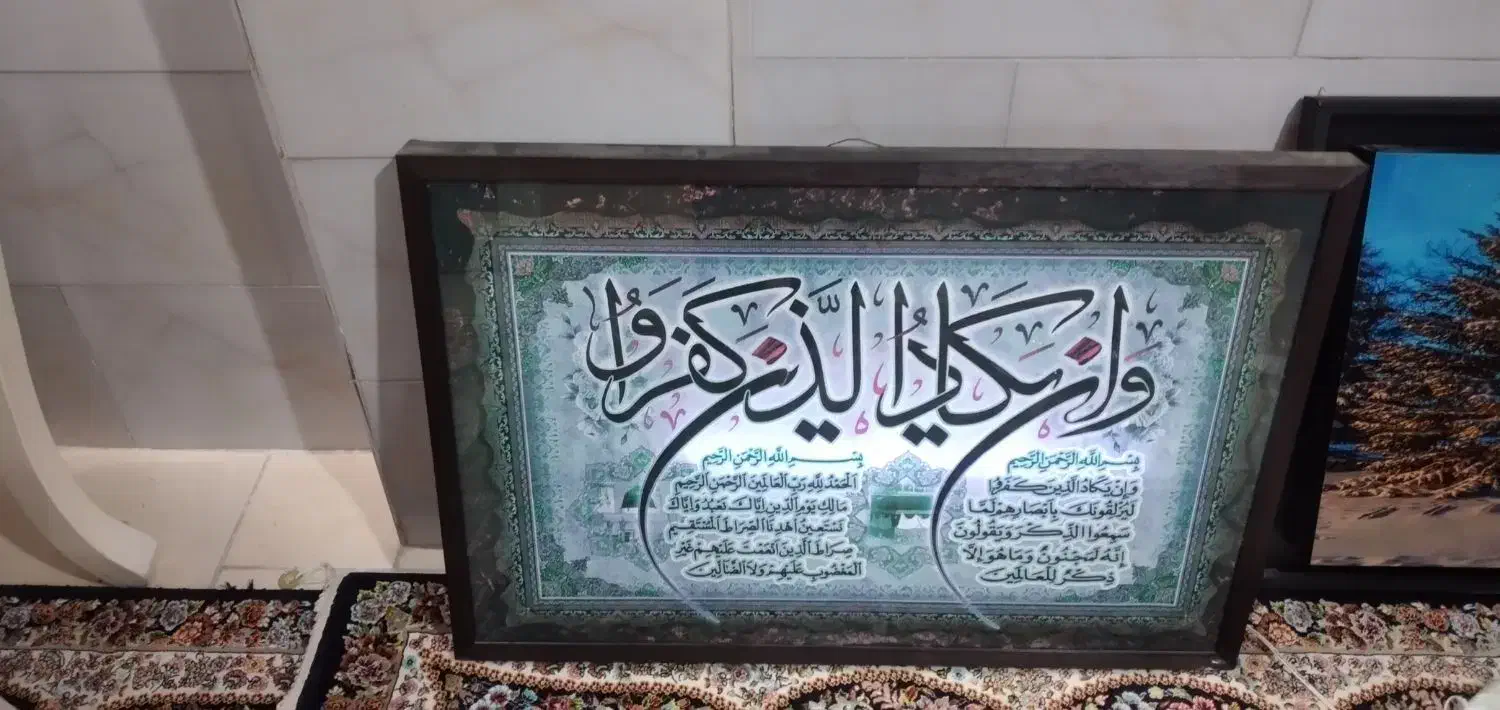 وَإِن يَكَادُ الَّذِينَ كَفَرُوا
بِسْمِ اللَّهِ الرَّحْمَنِ الرَّحِيمِ
وَإِنْ يَكَادُ الَّذِينَ كَفَرُوا
لَيُزْلِقُونَكَ بِأَبْصَارِهِمْ لَمَّا
سَمِعُوا الذِّكْرَ وَيَقُولُونَ
إِنَّهُ لَمَجْنُونٌ وَمَا هُوَ إِلَّا
ذِكْرٌ لِلْعَالَمِينَ
بِسْمِ اللَّهِ الرَّحْمَنِ الرَّحِيمِ
اَلْحَمْدُ لِلَّهِ رَبِّ الْعَالَمِينَ الرَّحْمَنِ الرَّحِيمِ
مَالِكِ يَوْمِ الدِّينِ إِيَّاكَ نَعْبُدُ وَإِيَّاكَ
نَسْتَعِينُ اهْدِنَا الصِّرَاطَ الْمُسْتَقِيمَ
صِرَاطَ الَّذِينَ أَنْعَمْتَ عَلَيْهِمْ غَيْرِ
الْمَغْضُوبِ عَلَيْهِمْ وَلَا الضَّالِّينَ